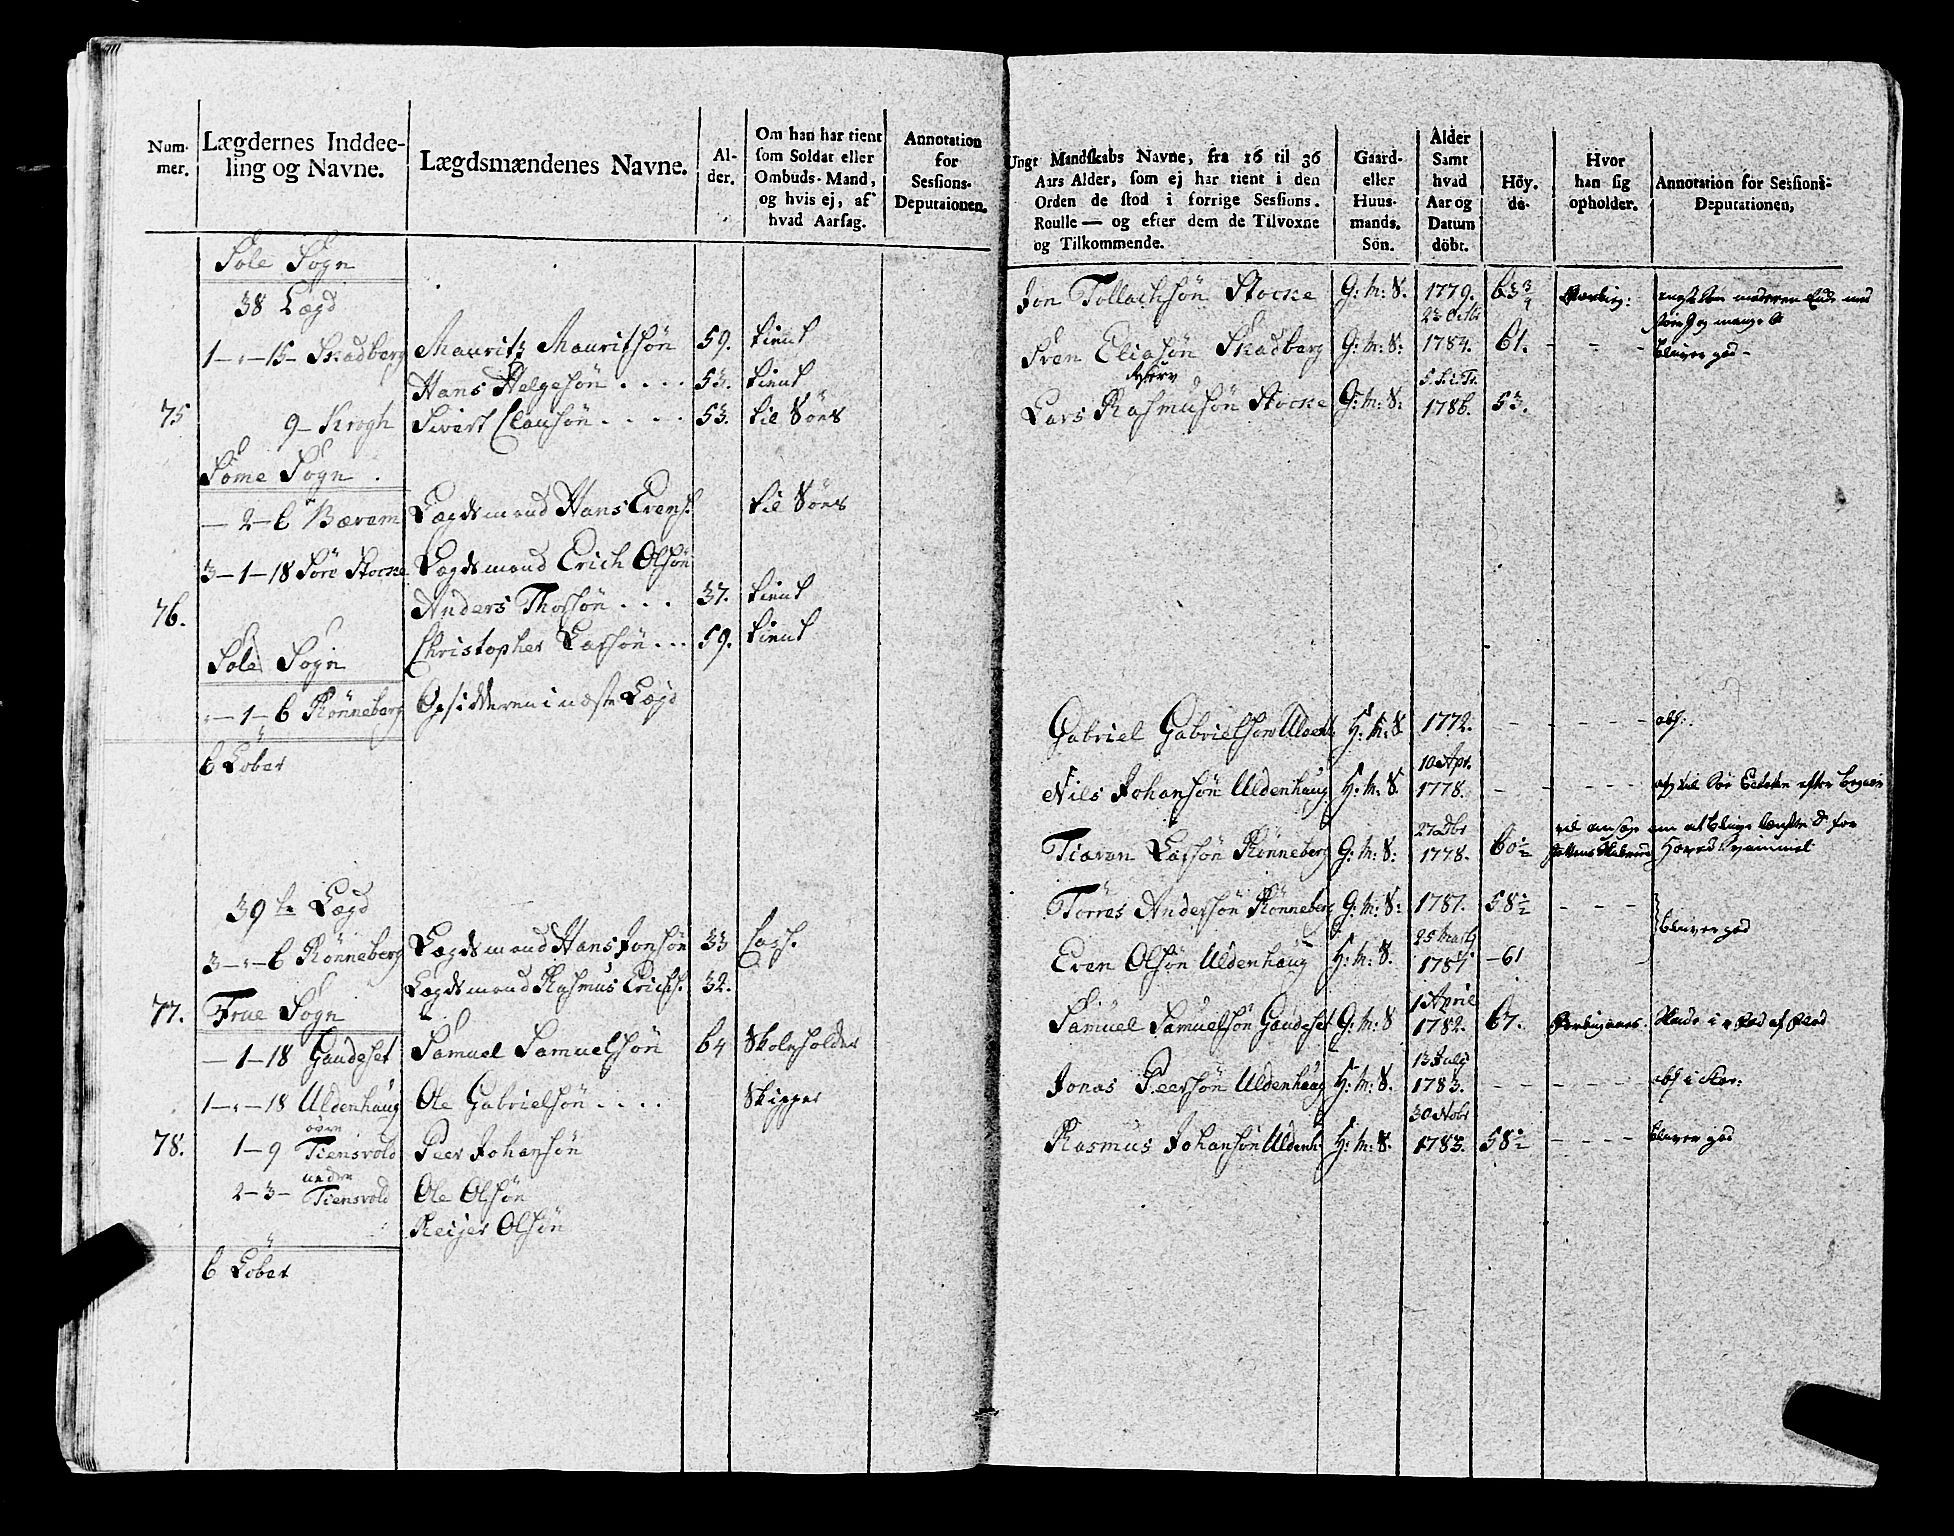 Num-
mer.
Lægdernes Inddee-
ling og Navne.
Lægdsmændenes Navne.
Al-
der.
Om han har tient
som Soldat eller
Ombuds-Mand,
og hvis ej, af
hvad Aarsag.
Annotation
for
Sessions-
Deputationen.
Sole Sogn
38 Lægd
1-"-15- Skadberg Mauritz Mauritsøn 59. tient
Hans Helgesøn . . . . 53. tient
75 9- Krogh Sivert Clausøn . . . . 53. til Søes
Some Sogn
- 2-6 Bærem Lægdsmand Hans Evens. til Søes
3-1-18 Sørc Stocke Lægdsmand Erich Olsøn
76. Anders Thorsøn . . . 37. tient
Christopher Larsøn . . . 59. tient
Sole Sogn
"-1-6 Rønneberg Opsidderen i næste Lægd
6 Løber
39te Lægd
3-"-6 Rønneberg Lægdsmand Hans Jonsøn 33
Lægdsmand Rasmus Erichs. 32.
77. Frue Sogn
-1-18 Gaudeset Samuel Samuelsøn 64 Skoleholder
1-"-18 Uldenhaug Ole Gabrielsøn . . . . Skipper
øvre
78. 1-9 Tiensvold Peer Johansøn
under
2-3- Tiensvold Ole Olsøn
Reijer Olsøn
6 Løber
Ungt Mandskabs Navne, fra 16 til 36
Aars Alder, som ej har tient i den
Orden de stod i forrige Sessions-
Roulle — og efter dem de Tilvoxne
og Tilkommende.
Gaard-
eller
Huus-
mands.
Sön.
Alder
Samt
hvad
Aar og
Datum
döbt.
Höy-
de.
Hvor
han sig
opholder.
Annotation for Sessions-
Deputationen.
Jon Tollachsøn Stocke G: M: S. 1779. 63 3/4
23 Octbr
Sven Eliasøn Skadberg G: M: S: 1784. 61. - - - bliver god-
Lars Rasmusøn Stocke G: M: S: 1786. 53.
Gabriel Gabrielsøn H: M: S 1772. - - - - - abs:
10 Apr.
Nils Johansøn Uldenhaug H: M: S 1778. - - - - -
27 Dbr
Tiøran Larsøn Rønneberg G: M: S: 1778. 60 1/2
Törres Andersøn Rønneberg G: M: S: 1781. 58 1/2 - - - bliver god
25 Martz
Even Olsøn Uldenhaug H: M: S. 1781 -61
1 April
Samuel Samuelsøn Gaudeset G: M: S 1782. 67.
13 July
Jonas Peersøn Uldenhaug H: M: S. 1783. - - - - -
30 Nobr
Rasmus Johansøn Uldenh: H: M: S. 1783. 58 1/2 - - - - bliver god